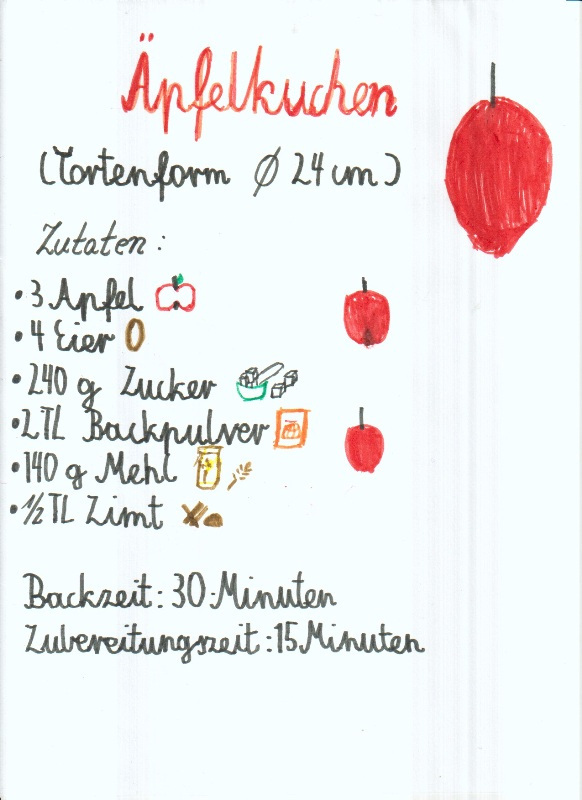 Äpfelkuchen
(Tortenform Ø 24 cm)
Zutaten:
• 3 Apfel
• 4 Eier
• 240 g Zucker
• 2 TL Backpulver
• 140 g Mehl
• 1/2 TL Zimt
Backzeit: 30 Minuten
Zubereitungszeit: 15 Minuten